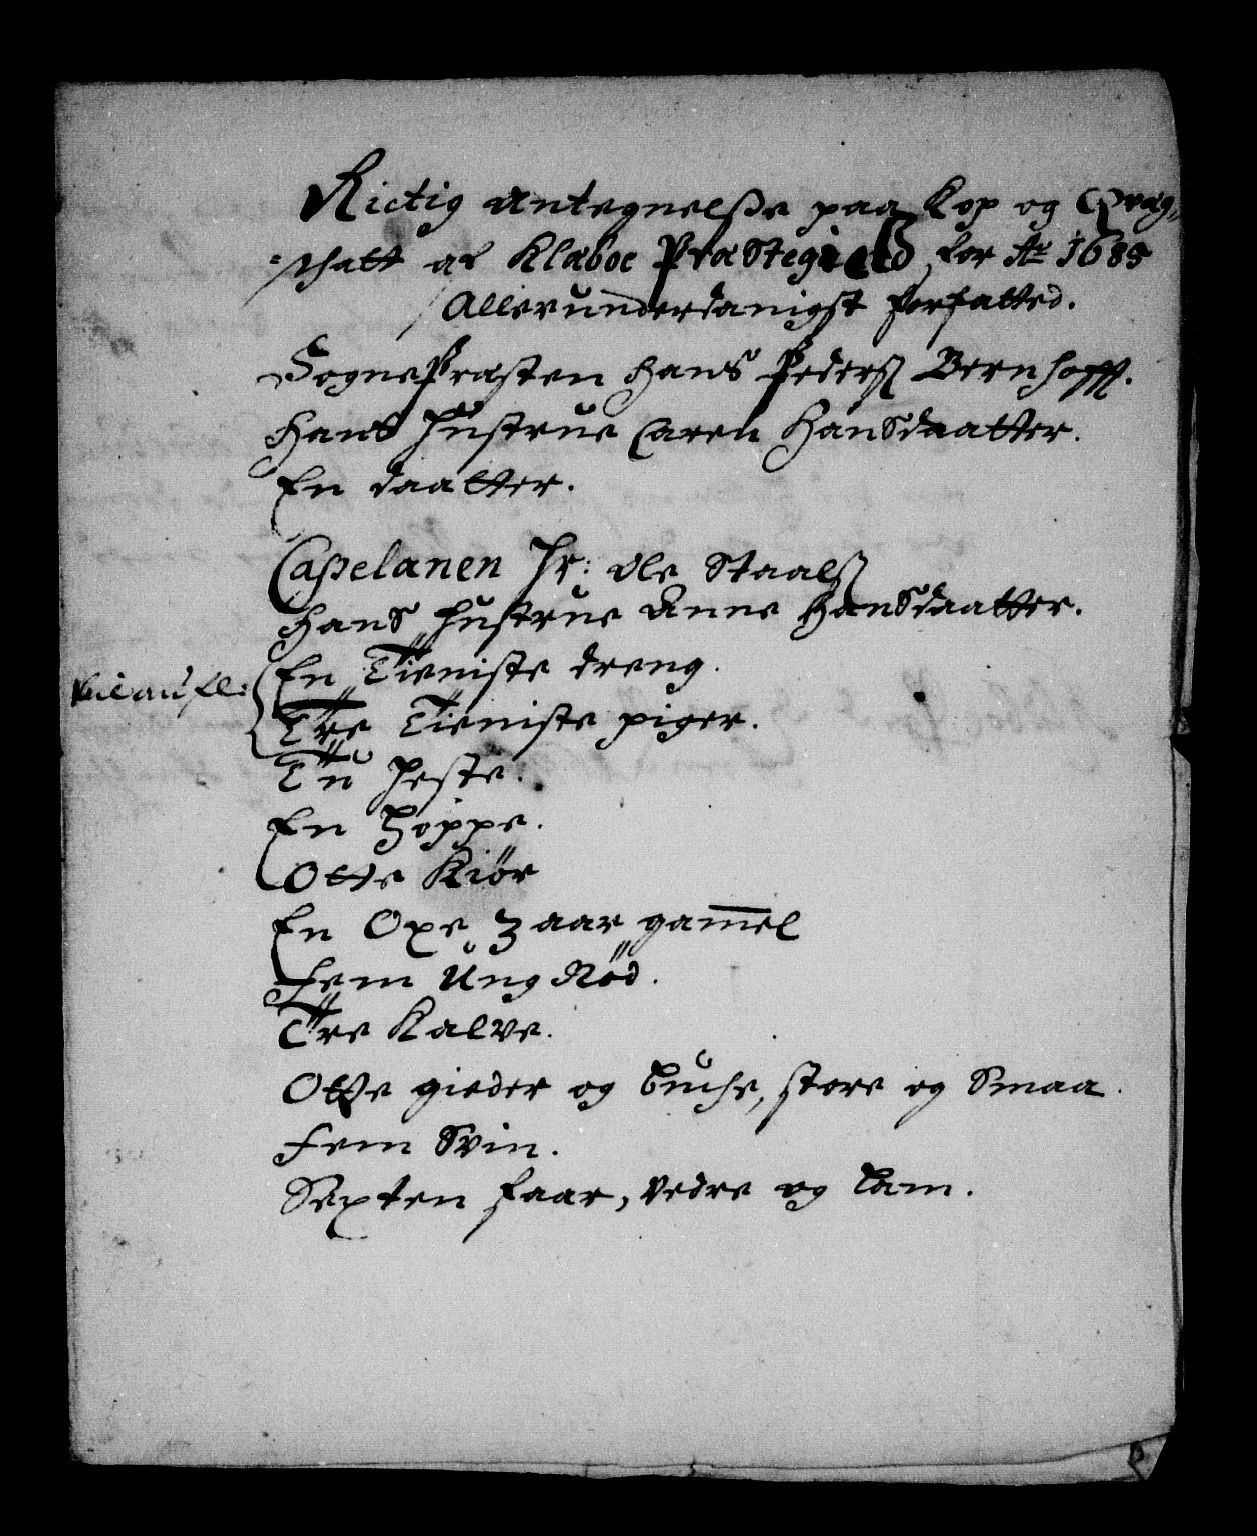 Rictig Antegnelsse paa Kop og Qvæg-
-schatt af Klæboe Præstegield for Aō 1685
Allerunderdanigst forfatted.
SognePræsten Hans Pederß Bernhofft.
Hans Hustrue Caren Hansdaatter.
En daatter.
Capelanen Hr: Ole Staalß
Hans Hustrue Anne Hansdaatter.
En Tieniste dreng.
Tre Tieniste piger.
Tu Heste.
En Hoppe.
Otte Kiør
En Oxe 3 aar gamel
Fem Ung Nød.
Tre Kalve.
Otte gieder og Buche, store og Smaa.
Fem Svin.
Sexten faar, vedre og Lam.